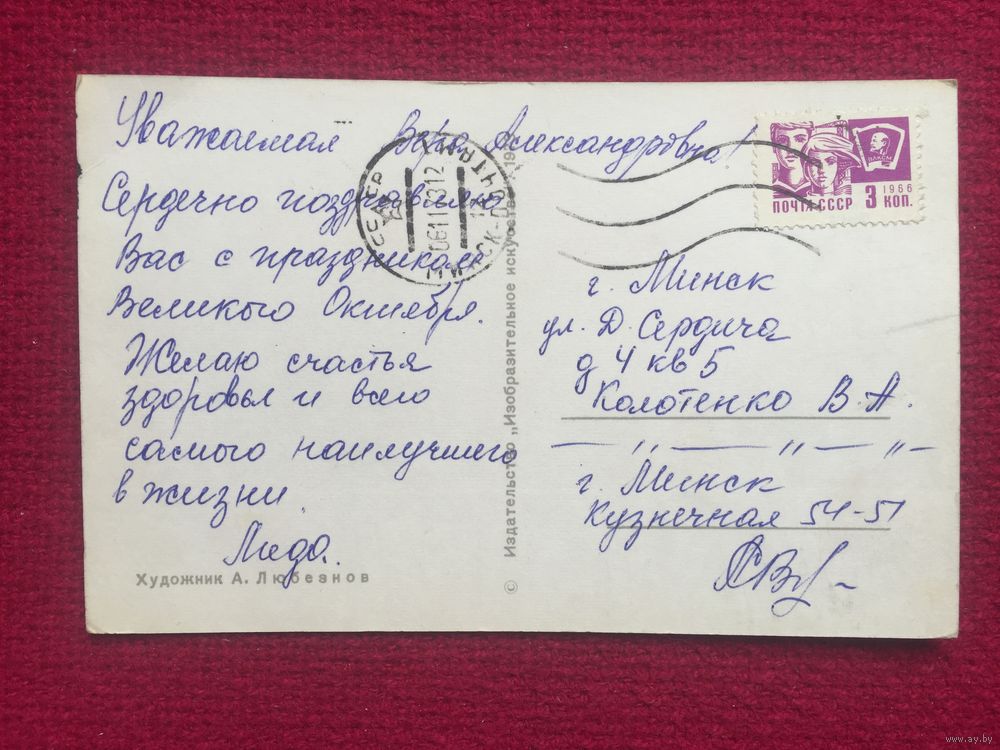 Уважаемая Вера Александровна!
Сердечно поздравляю
Вас с праздником
Великого Октября.
Желаю счастья
здоровья и всего
самого наилучшего
в жизни.
Лида.
Художник А. Любезнов
© Издательство „Изобразительное искусство"
МИНСК
ПОЧТАМТ
СССР
ВЛКСМ
1966
ПОЧТА СССР 3 КОП.
г. Минск
ул. Д. Сердича
д 4 кв 5
Колотенко В. А.
— „ — „ — „ —
г. Минск
Кузнечная 54-51
www.ay.by